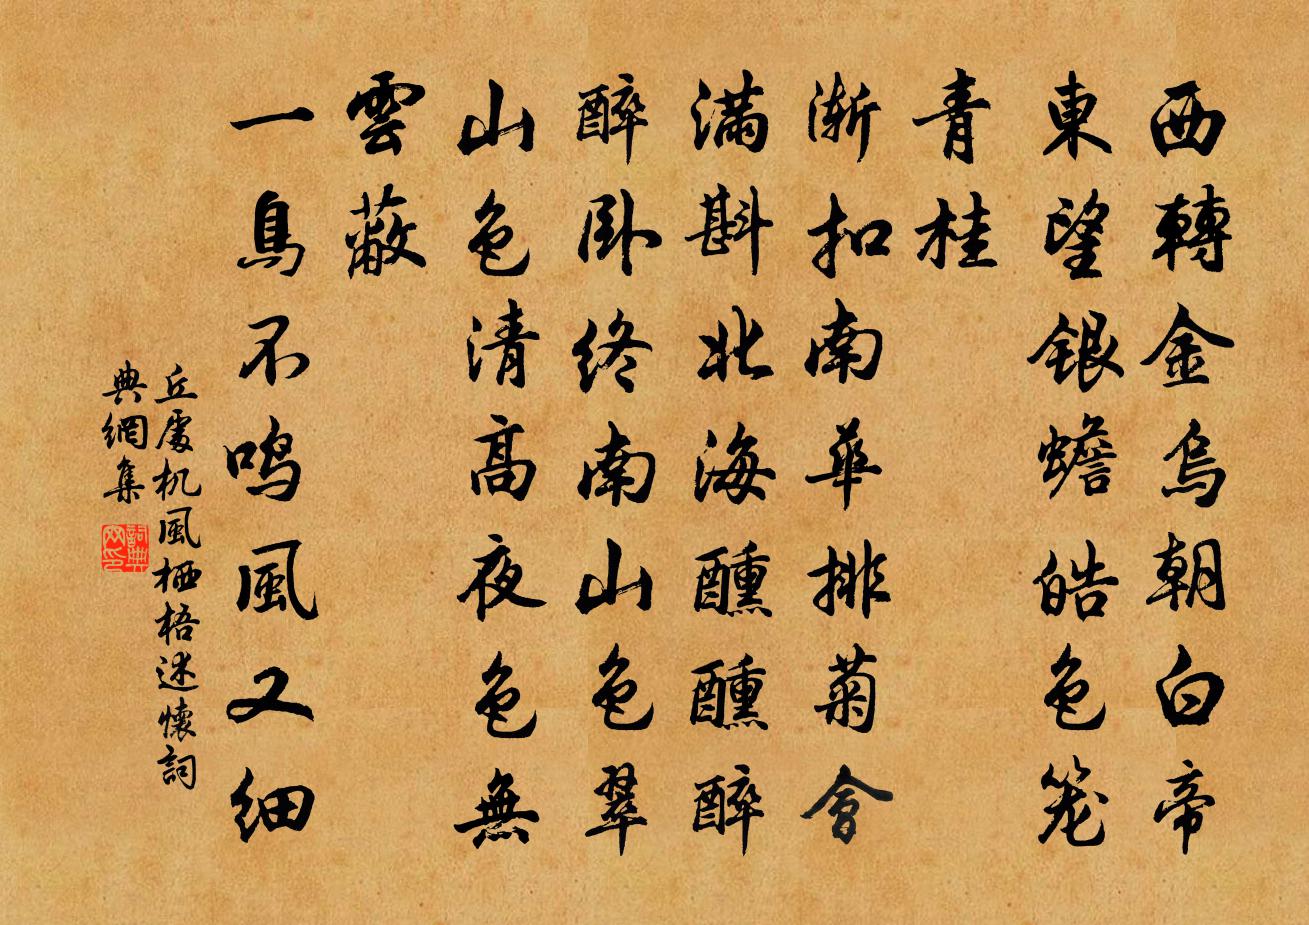 西轉金烏朝白帝
東望銀蟾皓色笼
青桂
漸扣南華排菊會
滿斟北海醺醺醉
醉卧终南山色翠
山色清高夜色無
雲蔽
一鳥不鸣風又细
丘處机風栖梧述懷詞
典網集
詞典网印